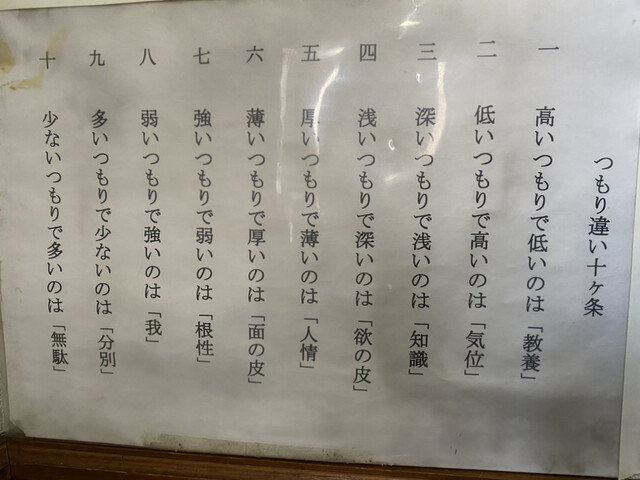 つもり違い十ヶ条
一 高いつもりで低いのは「教養」
二 低いつもりで高いのは「気位」
三 深いつもりで浅いのは「知識」
四 浅いつもりで深いのは「欲の皮」
五 厚いつもりで薄いのは「人情」
六 薄いつもりで厚いのは「面の皮」
七 強いつもりで弱いのは「根性」
八 弱いつもりで強いのは「我」
九 多いつもりで少ないのは「分別」
十 少ないつもりで多いのは「無駄」